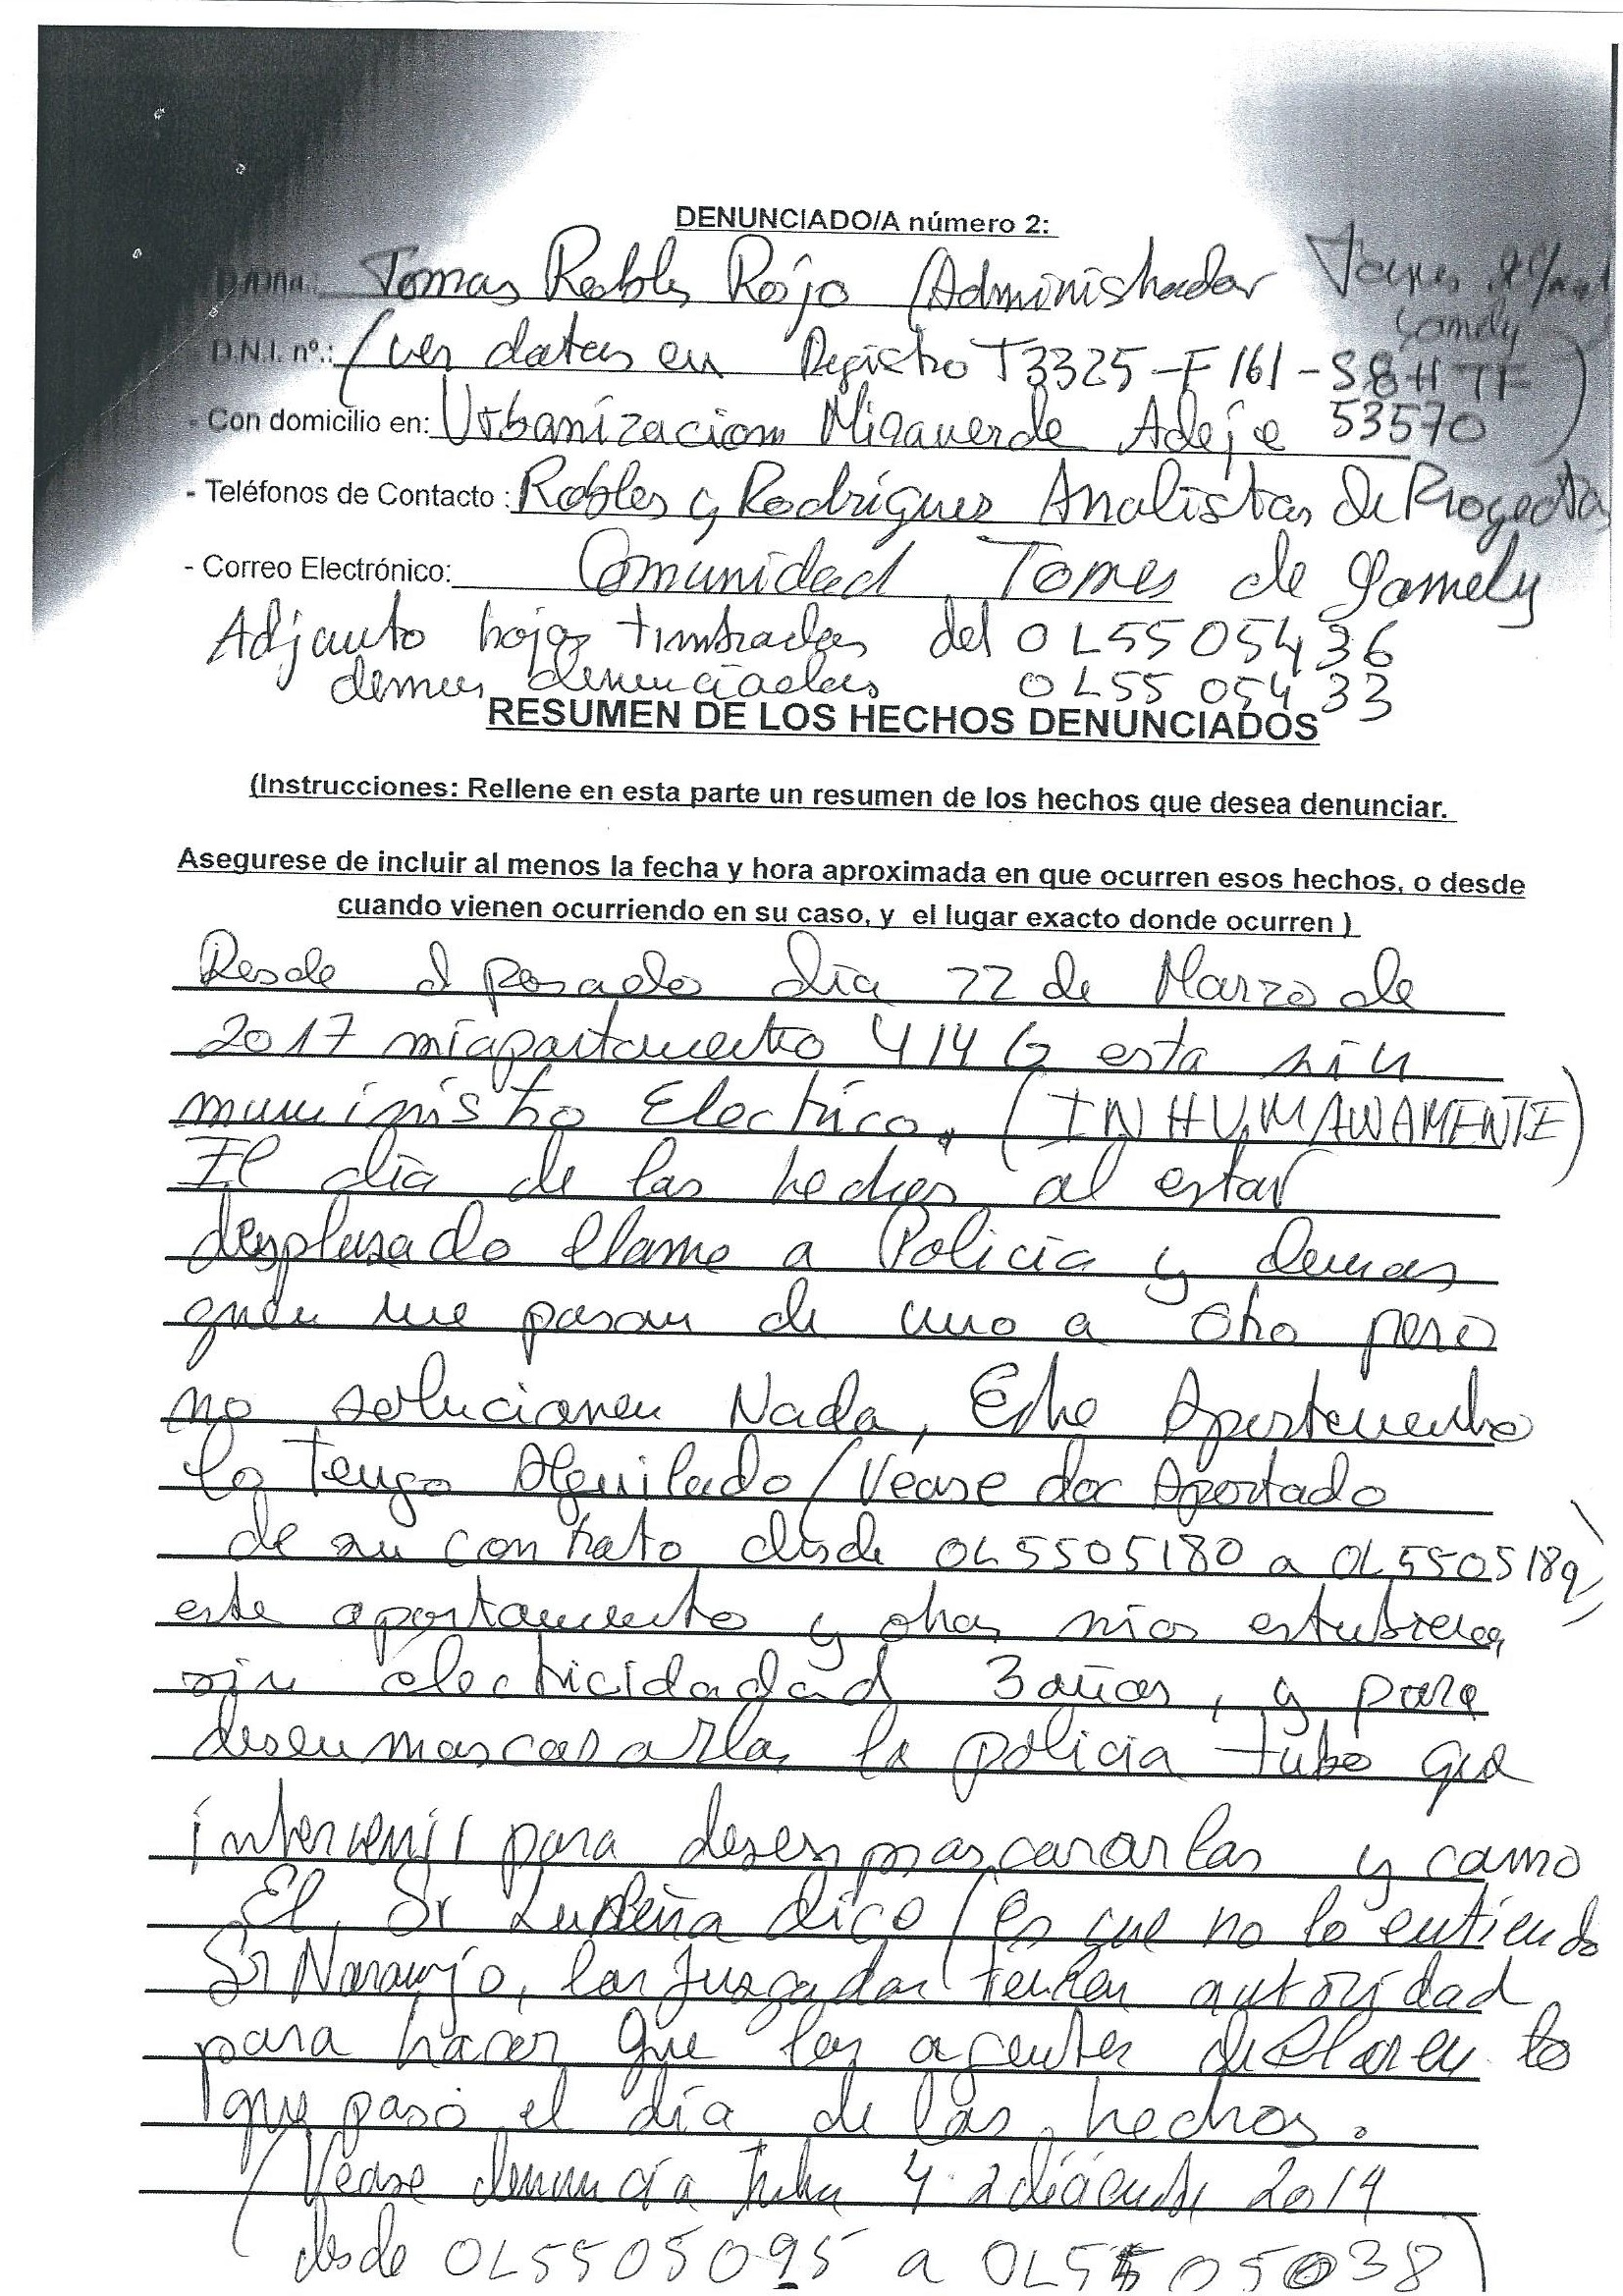 DENUNCIADO/A número 2:
Tomas Robles Rojo /Administrador Torres
Yomely
D.N.I. nº.: (ver datos en Registro T3325-F161-S8HTF
- Con domicilio en: Urbanizacion Miraverde Adeje 53570)
- Teléfonos de Contacto : Robles y Rodrigues Analistas De Proyectos
- Correo Electrónico: Comunidad Torres de Yomely
Adjunto hojas timbradas del OL5505436
demas denunciados OL5505433
RESUMEN DE LOS HECHOS DENUNCIADOS
(Instrucciones: Rellene en esta parte un resumen de los hechos que desea denunciar.
Asegurese de incluir al menos la fecha y hora aproximada en que ocurren esos hechos, o desde
cuando vienen ocurriendo en su caso, y el lugar exacto donde ocurren )
Desde el pasado dia 22 de Marzo de
2017 mi apartamento 414 G esta sin
muministro Electrico. (INHUMANAMENTE)
El dia de los hechos al estar
desplasado llame a Policia y demas
quen me pasan de uno a otro pero
no solucionen Nada, Este Apartamento
lo Tengo Alquilado (Vease doc Aportado
de su contrato desde OL5505180 a OL5505189)
este apartamento y otros mios estubieron
sin electricidadad 3 años, y para
desenmascararlos la policia tubo que
intervenir para desenmascararlos y como
El Sr Ludeña dice (es que no lo entiendo
Sr Naranjo, los Juzgados tenien autoridad
para hacer que los agentes declaren lo
que pasó el día de los hechos.
(Vease denuncia 4 2 diciembre 2014
desde OL5505095 a OL5505038)